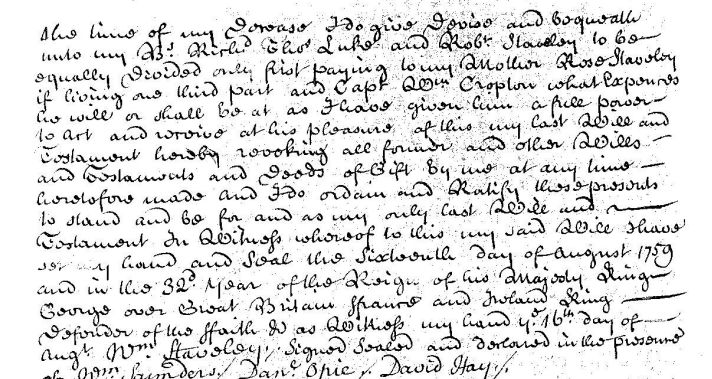 the time of my Decease I do give Devise and bequeath
unto my Br. Richd. Thos. Luke and Robt. Staveley to be
equally Divided only first paying to my Mother Rose Staveley
if living one third part and Capt. Wm. Cropton what Expences
he will or shall be at as I have given him a full power
to act and receive at his pleasure of this my last Will and
Testament hereby revoking all former and other Wills
and Testaments and Deeds of Gift by me at any time
heretofore made and I do ordain and Ratify these presents
to stand and be for and as my only last Will and
Testament In Witness whereof to this my said Will I have
set my hand and Seal the Sixteenth day of August 1759
and in the 32d. Year of the Reign of his Majesty King
George over Great Britain ffrance and Ireland King
Defender of the ffaith &c as Witness my hand ye. 16th. day of
Augt. Wm. Staveley. Signed Sealed and declared in the presence
of Wm. Saunders. Danl. Opie. David Hay.